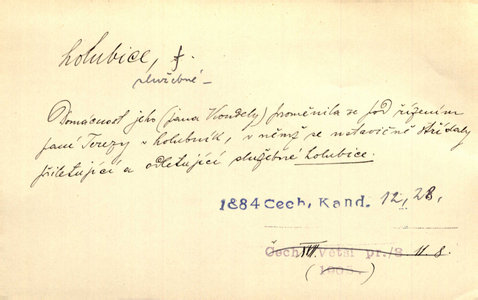 holubice, f.
služebné –
Domácnost jeho (Jana Kondely) proměnila se pod řízením
paní Terezy v holubník, v němž se neustavičně střídaly
přiletující a odletující služebné holubice.
1884 Čech, Kand. 12, 28,
Čech, VII. Větší pr./3. 11. 8.
(1908.)